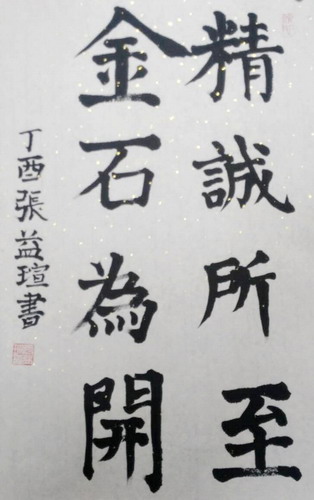 精誠所至
金石為開
丁酉張益瑄書